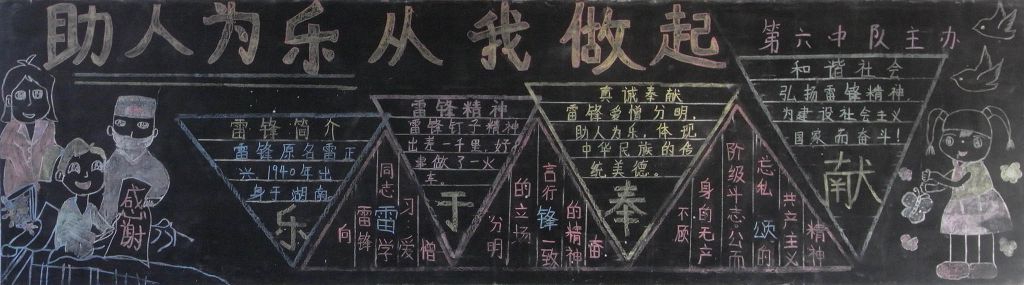 助人为乐从我做起
第六中队主办
感谢
雷锋简介
雷锋原名雷正
兴1940年出
身于湖南
乐
雷锋精神
雷锋钉子精神
出差一千里,好
事做了一火
车。
于
真诚奉献
雷锋爱憎分明,
助人为乐,体现
中华民族的传
统美德。
奉
和谐社会
弘扬雷锋精神,
为建设社会主义
国家而奋斗!
献
向
雷锋
同志
雷
学
习:爱
憎
分明
的立场
言行
锋
一致
的精神
奋
不顾
身的无产
阶级斗志公而
忘私
颂
的
共产主义
精神